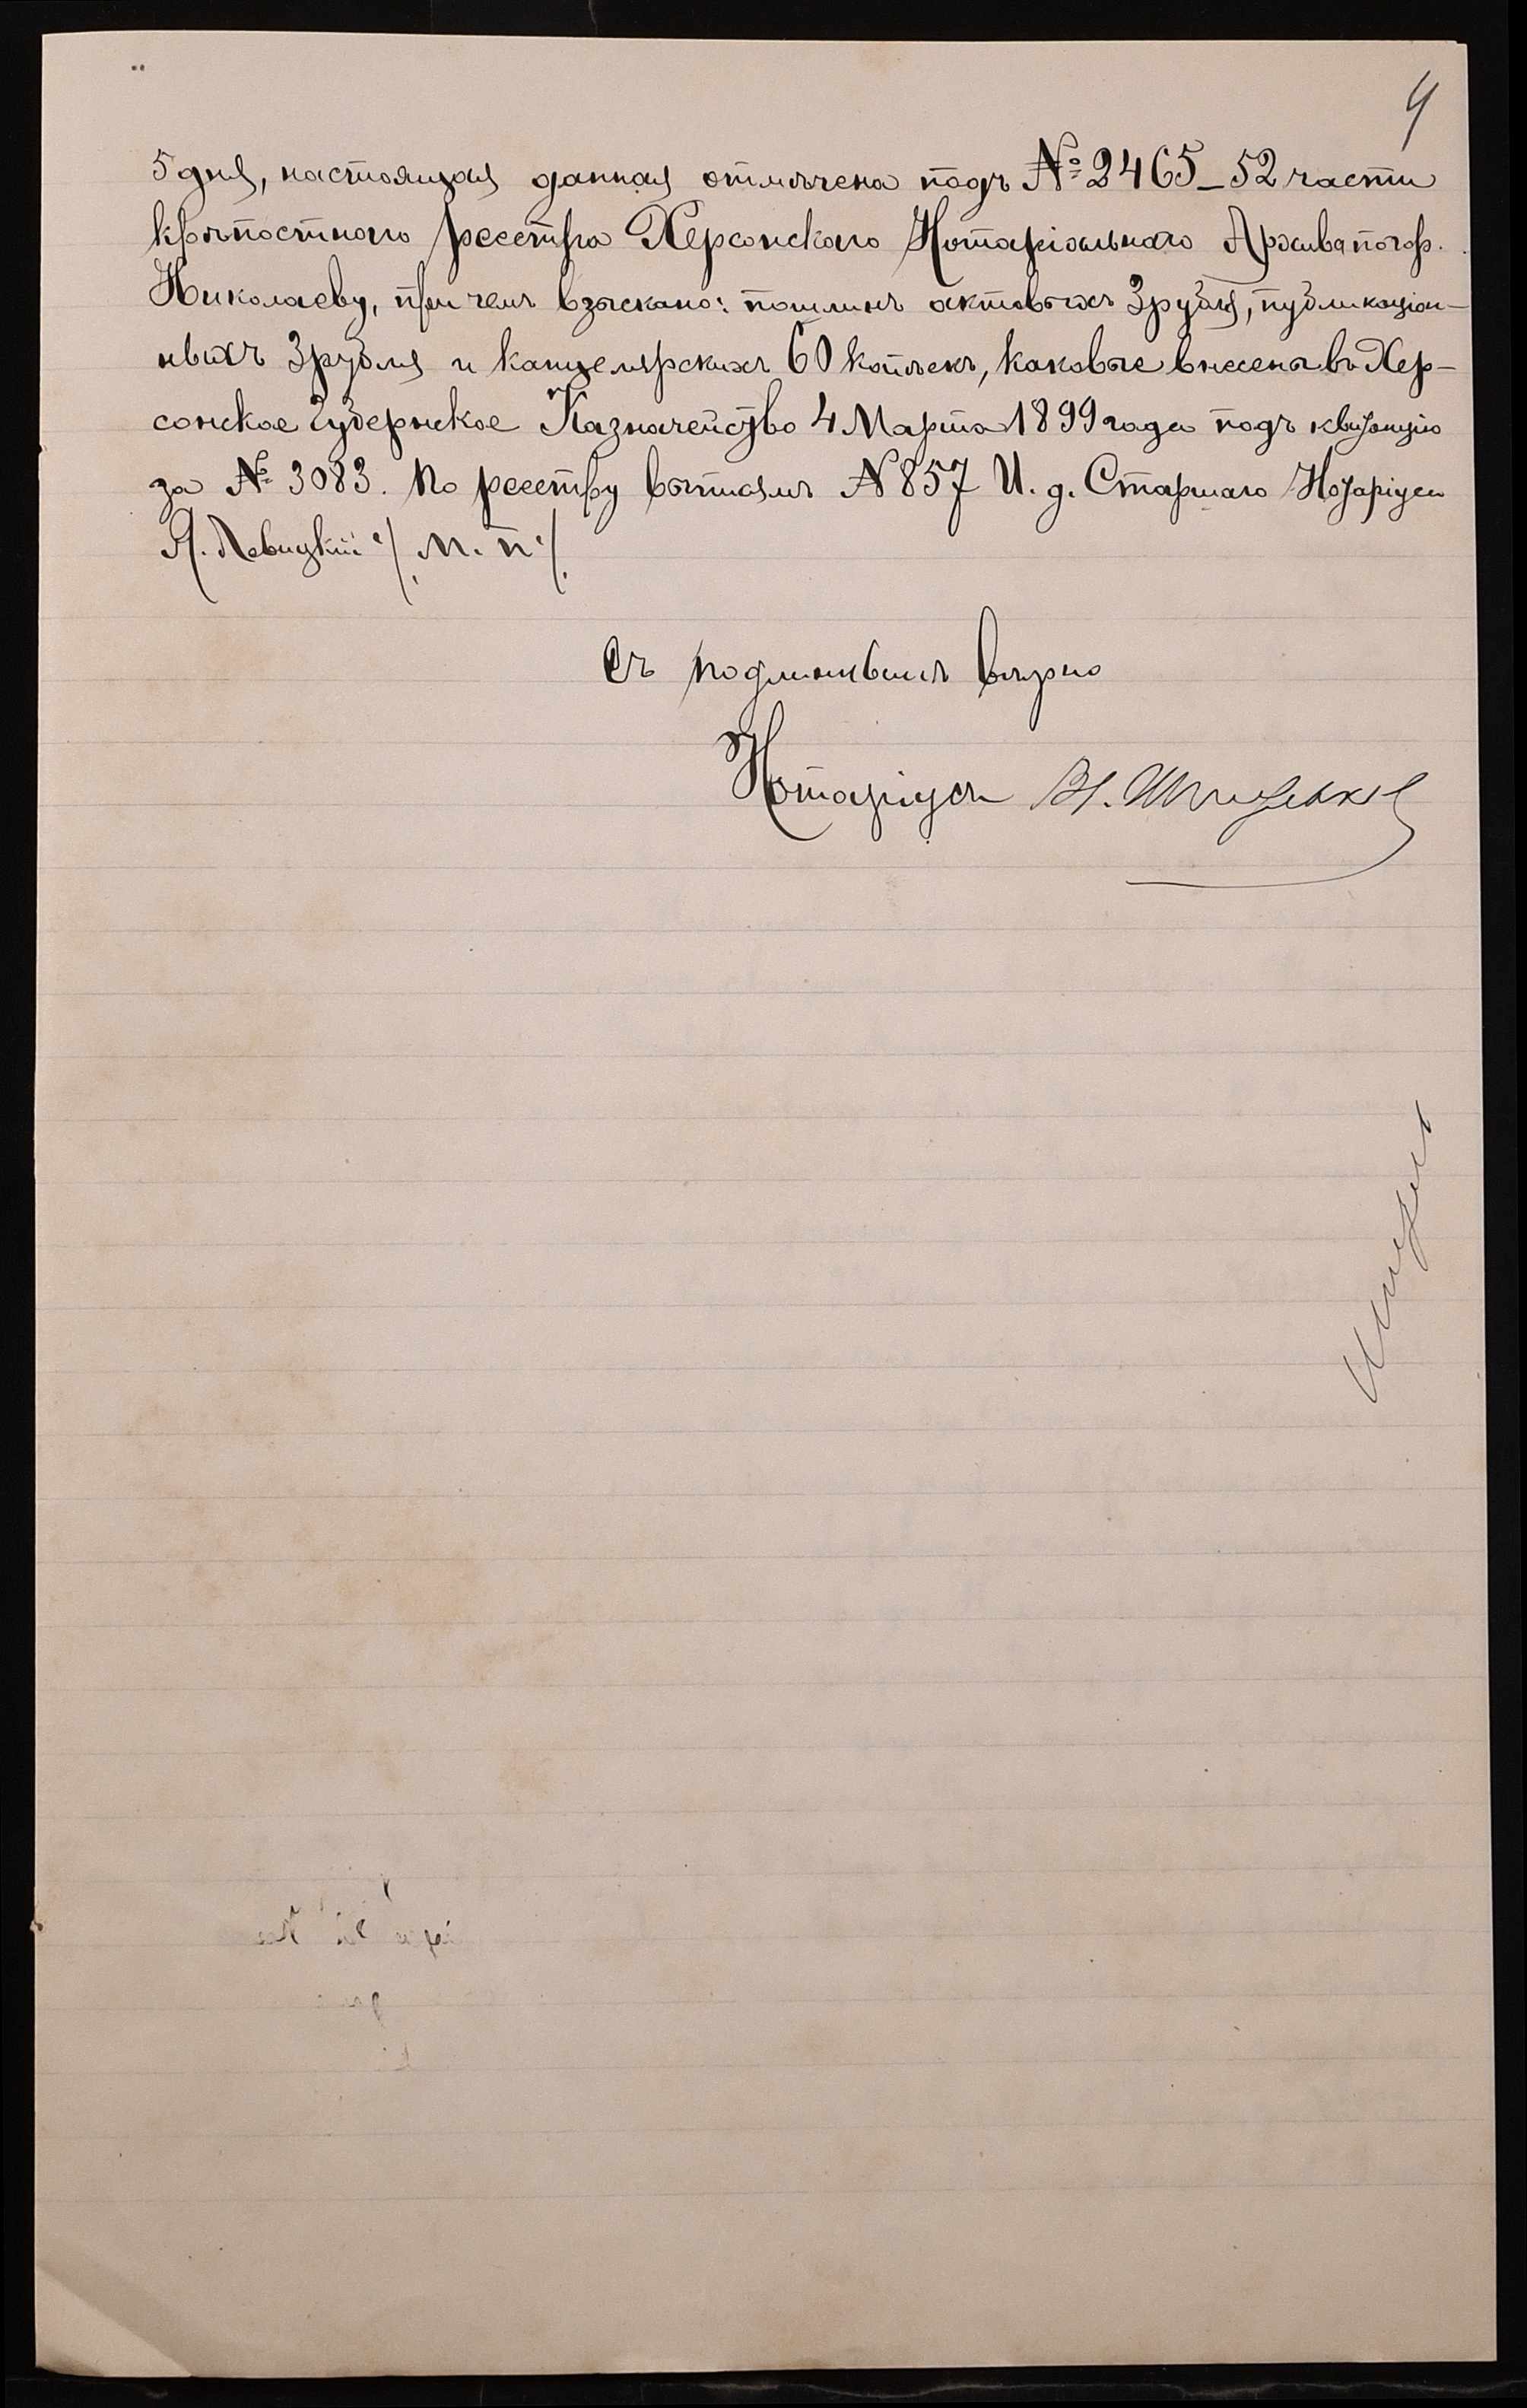 4
5 дня, настоящая данная отмѣчена подъ № 2465–52 части
крѣпостного реестра Херсонскаго Нотаріальнаго Архива по гор.
Николаеву, при чемъ взыскано: пошлинъ актовыхъ 3 рубля, публикаціон-
ныхъ 3 рубля и канцелярскихъ 60 копѣекъ, каковые внесены въ Хер-
сонское Губернское Казначейство 4 Марта 1899 года подъ квитанцію
за № 3083. По реестру выписямъ N 857 И. д. Старшаго Нотаріуса
Я. Левицкій /М. П./
Съ подлиннымъ вѣрно
Нотаріусъ